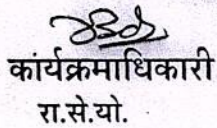 कांर्यक्रमाधिकारी
रा.से.यो.